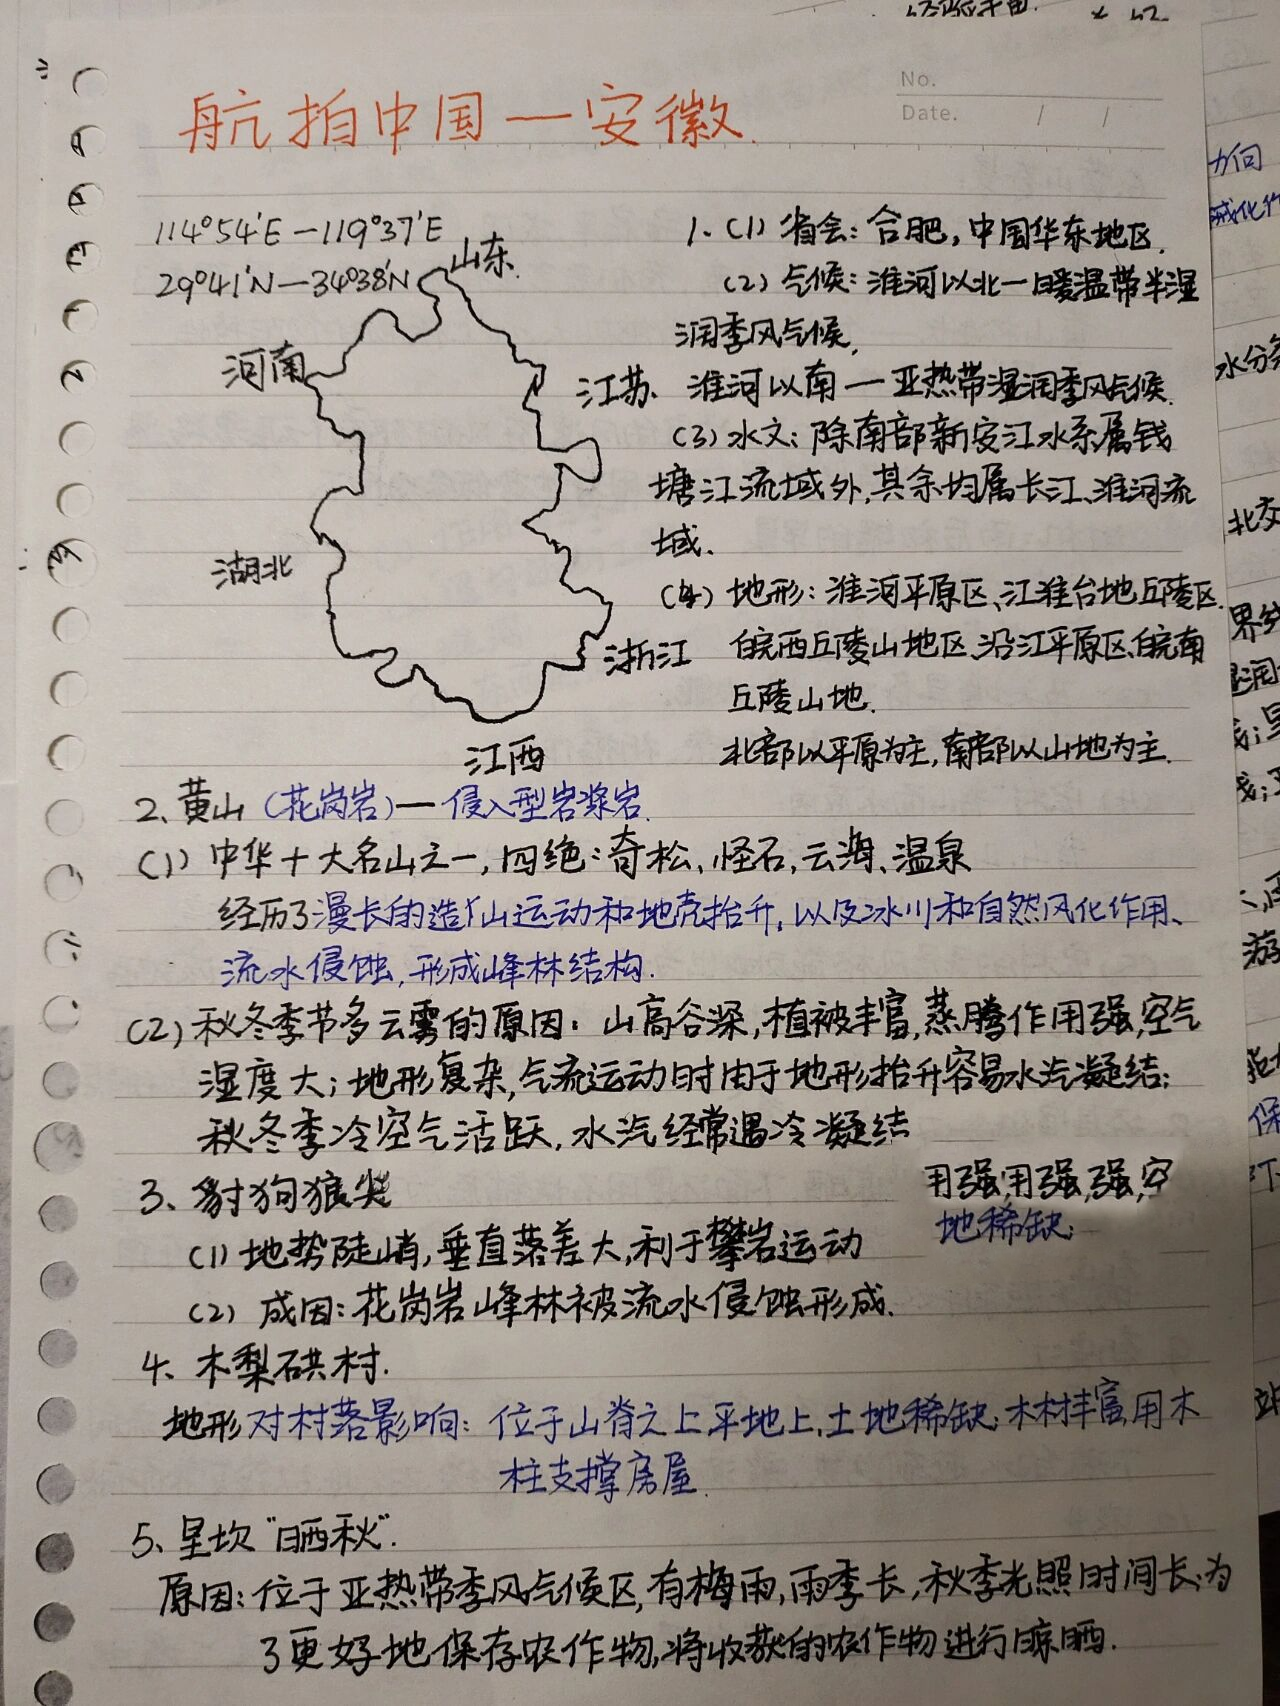 航拍中国—安徽.
No.
Date. / /
114°54′E—119°37′E
29°41′N—34°38′N
山东.
河南
江苏.
湖北
浙江
江西
1. (1) 省会: 合肥, 中国华东地区.
(2) 气候: 淮河以北—暖温带半湿
润季风气候.
淮河以南—亚热带湿润季风气候.
(3) 水文: 除南部新安江水系属钱
塘江流域外, 其余均属长江、淮河流
域.
(4) 地形: 淮河平原区、江淮台地丘陵区.
皖西丘陵山地区、沿江平原区、皖南
丘陵山地.
北部以平原为主, 南部以山地为主.
2、黄山 (花岗岩)—侵入型岩浆岩.
(1) 中华十大名山之一, 四绝: 奇松、怪石、云海、温泉
经历了漫长的造山运动和地壳抬升, 以及冰川和自然风化作用、
流水侵蚀, 形成峰林结构.
(2) 秋冬季节多云雾的原因: 山高谷深, 植被丰富, 蒸腾作用强, 空气
湿度大; 地形复杂, 气流运动时由于地形抬升容易水汽凝结;
秋冬季冷空气活跃, 水汽经常遇冷凝结
用强,用强,强,空
地稀缺;
3、豺狗狼尖
(1) 地势陡峭, 垂直落差大, 利于攀岩运动
(2) 成因: 花岗岩峰林被流水侵蚀形成.
4、木梨硔村.
地形对村落影响: 位于山脊之上平地上, 土地稀缺; 木材丰富, 用木
柱支撑房屋.
5、呈坎“晒秋”.
原因: 位于亚热带季风气候区, 有梅雨, 雨季长, 秋季光照时间长; 为
了更好地保存农作物, 将收获的农作物进行晾晒.
方向
水分
北交
游